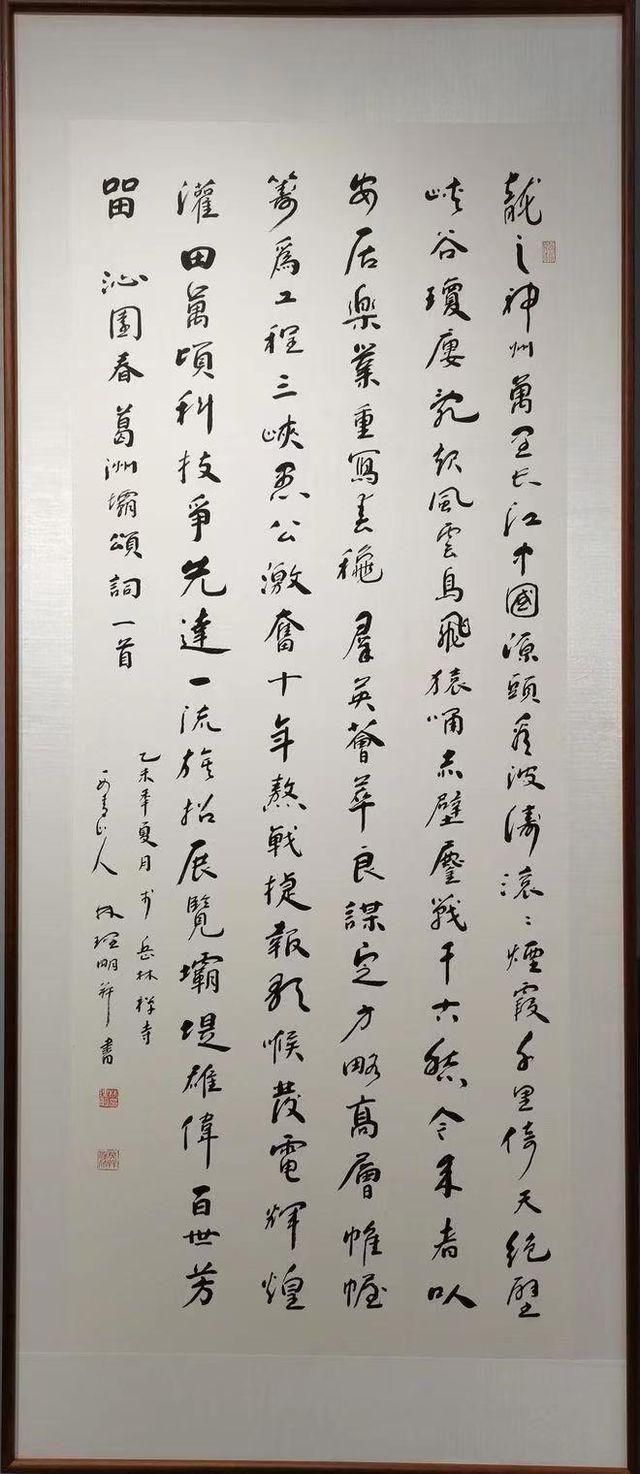 龍之神州萬里長江中國源頭看波濤滾〻煙霞千里倚天絕壁
峽谷瓊廔起風雲鳥飛猿啼赤壁鏖戰千古愁今來者以
安居樂業重寫春穐羣英薈萃良謀定方略高層帷幄
籌爲工程三峽愚公激奮十年熬戰捷報歌喉發電輝煌
灌田萬頃科技爭先達一流旌招展覽壩堤雄偉百世芳
留 沁園春 葛洲壩頌詞一首
乙未年夏月於岳林禅寺
山人 明并書